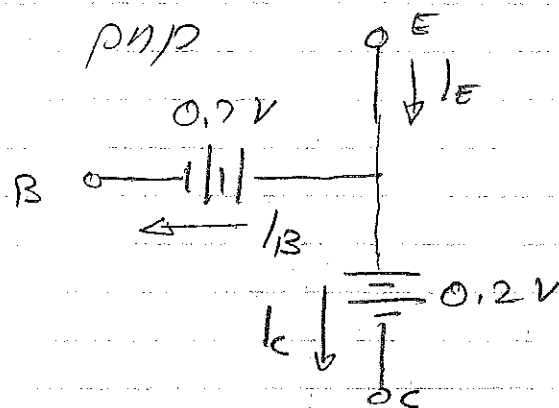 pnp
E
I_E
0.7 V
B
I_B
0.2 V
I_C
C